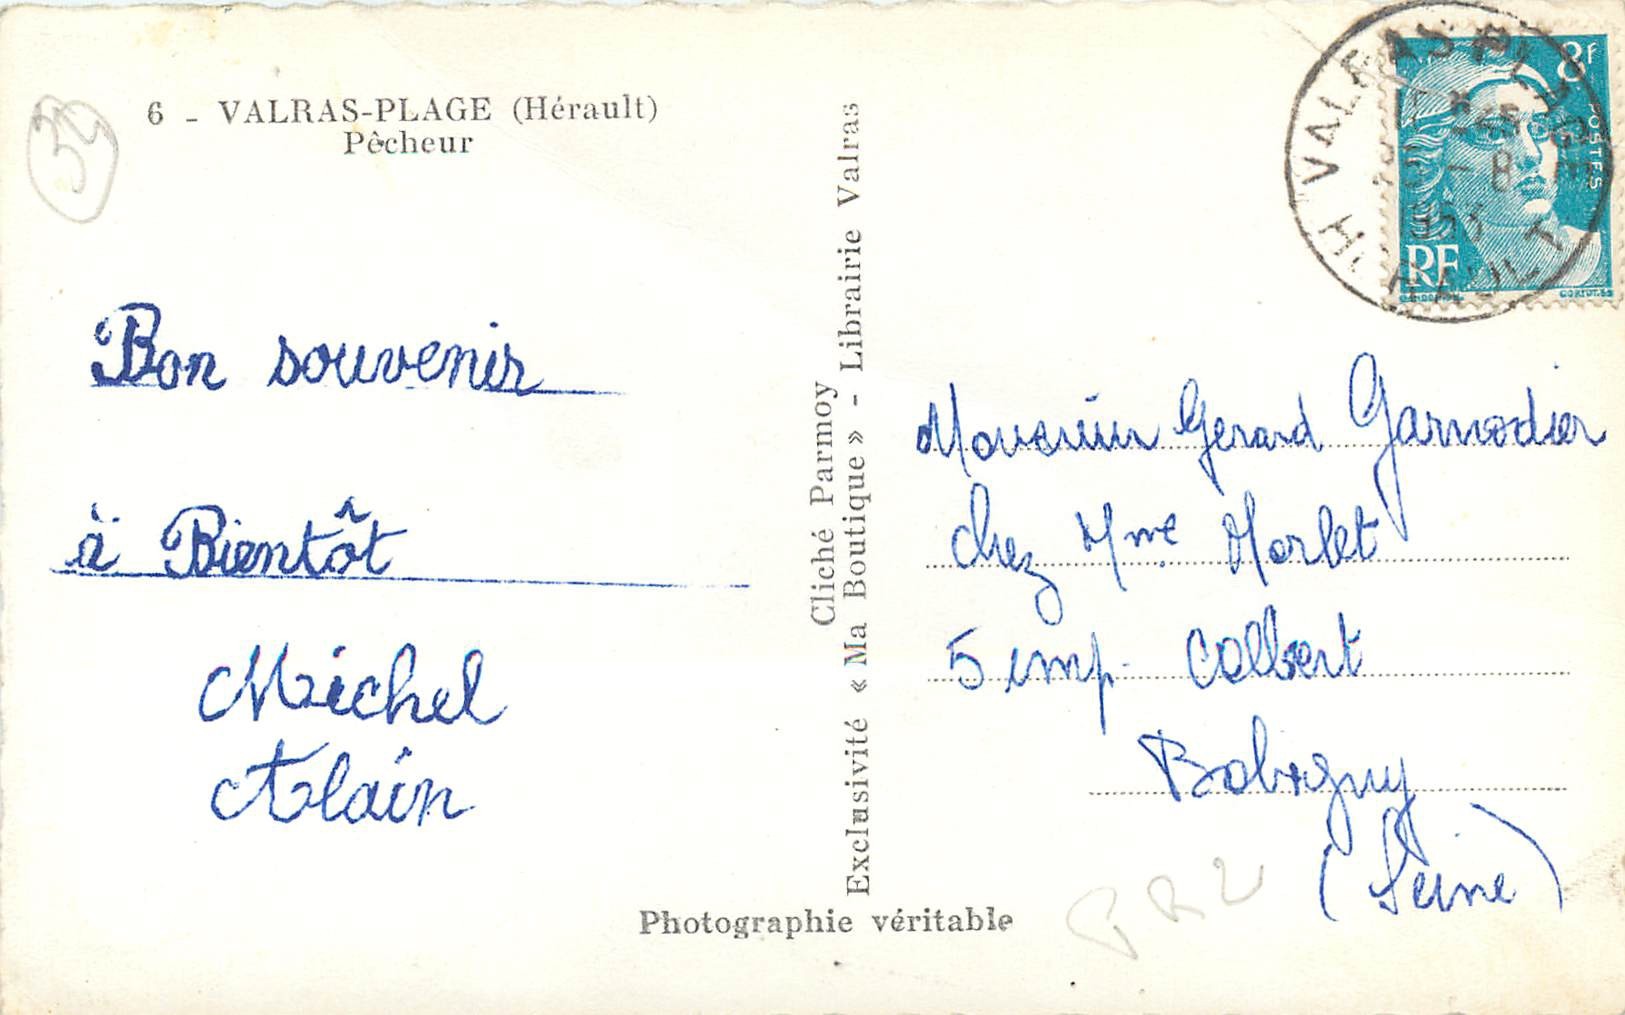 6 - VALRAS-PLAGE (Hérault)
Pêcheur
34
Bon souvenir
à Bientôt
Michel
Alain
Cliché Parmoy
Exclusivité « Ma Boutique » - Librairie Valras
Photographie véritable
VALRAS PLAGE
HERAULT
- 8
1953
8F
POSTES
RF
GANDON
CORTOT.SS
Monsieur Gerard Garnodier
chez Mme Morlet
5 imp. Colbert
Bobigny
(Seine)